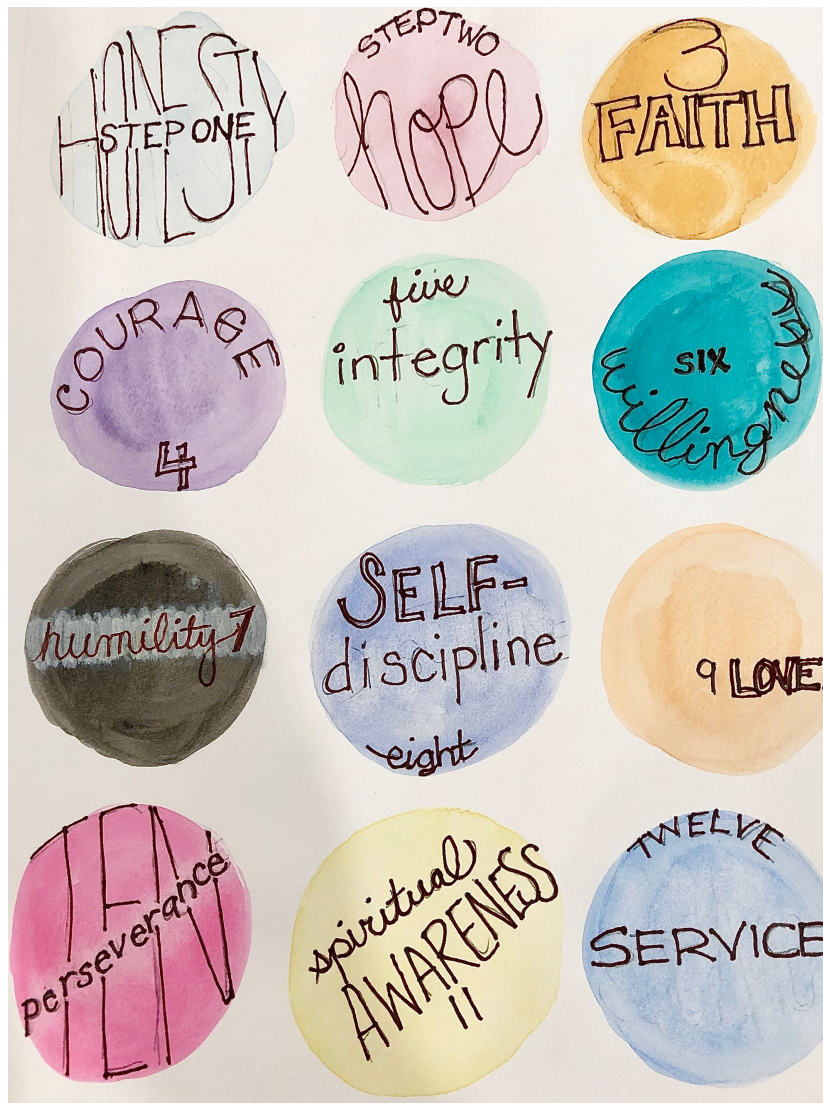 HONESTY
STEP ONE
STEP TWO
hope
3
FAITH
COURAGE
4
five
integrity
six
willingness
humility 7
SELF-
discipline
eight
9 LOVE
TEN
perseverance
spiritual
AWARENESS
11
TWELVE
SERVICE